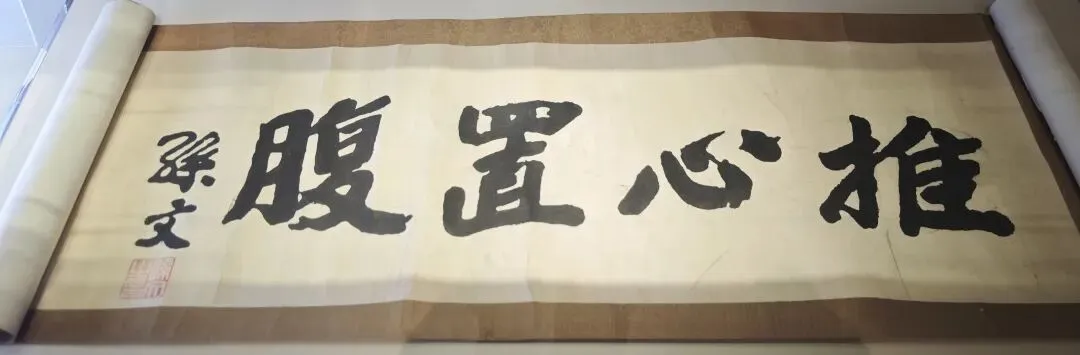 推心置腹
孫文